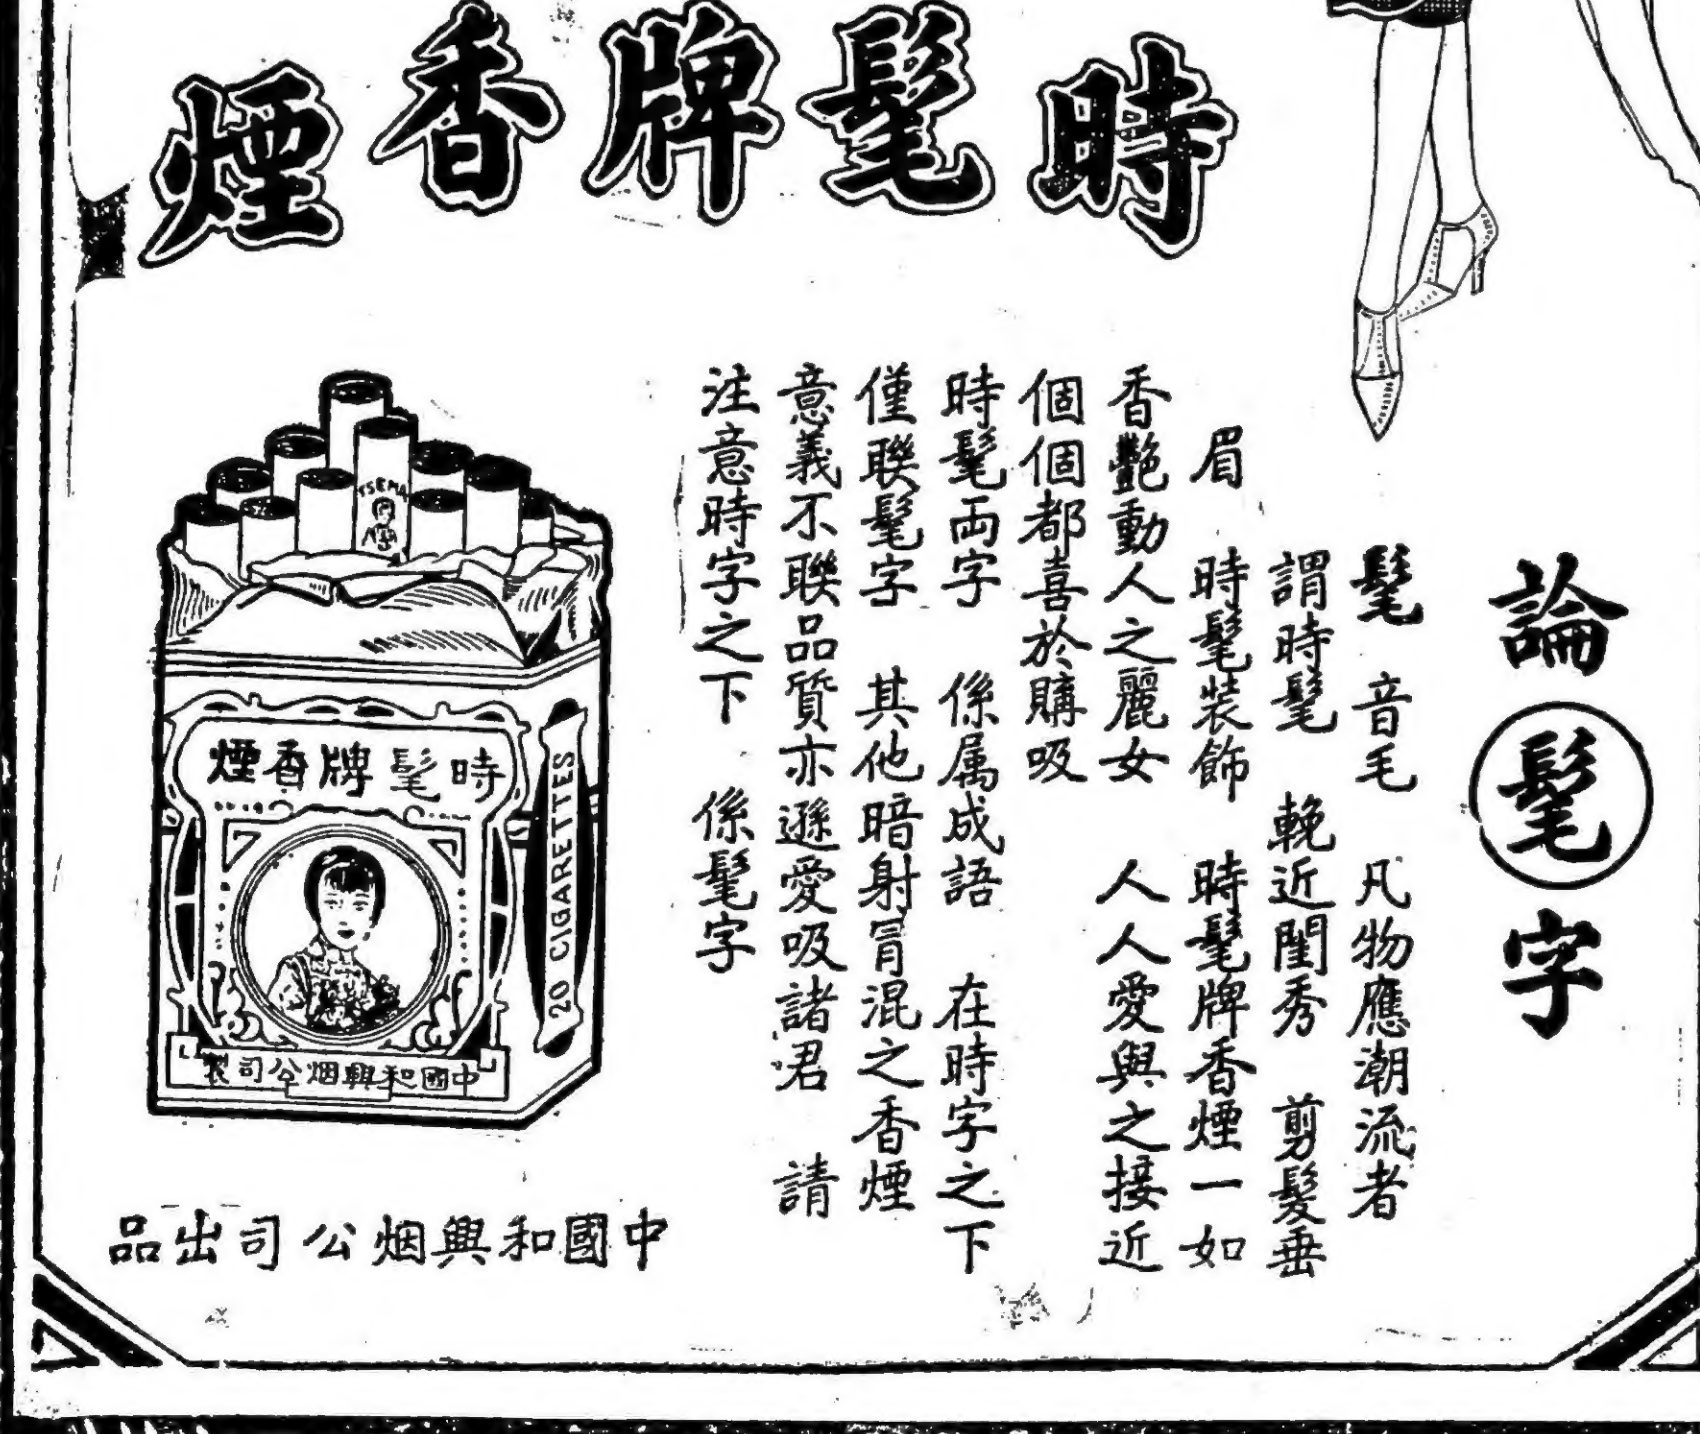 時髦牌香煙
論髦字
髦 音毛 凡物應潮流者
謂時髦 輓近閨秀 剪髮垂
眉 時髦裝飾 時髦牌香煙一如
香艷動人之麗女 人人愛與之接近
個個都喜於購吸
時髦両字 係属成語 在時字之下
僅聯髦字 其他暗射冒混之香煙
意義不聯品質亦遜愛吸諸君 請
注意時字之下 係髦字
TSEMA
時髦牌香煙
20 CIGARETTES
中國和興烟公司製
中國和興烟公司出品